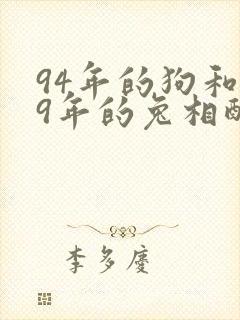 94年的狗和
9年的兔相
李多慶